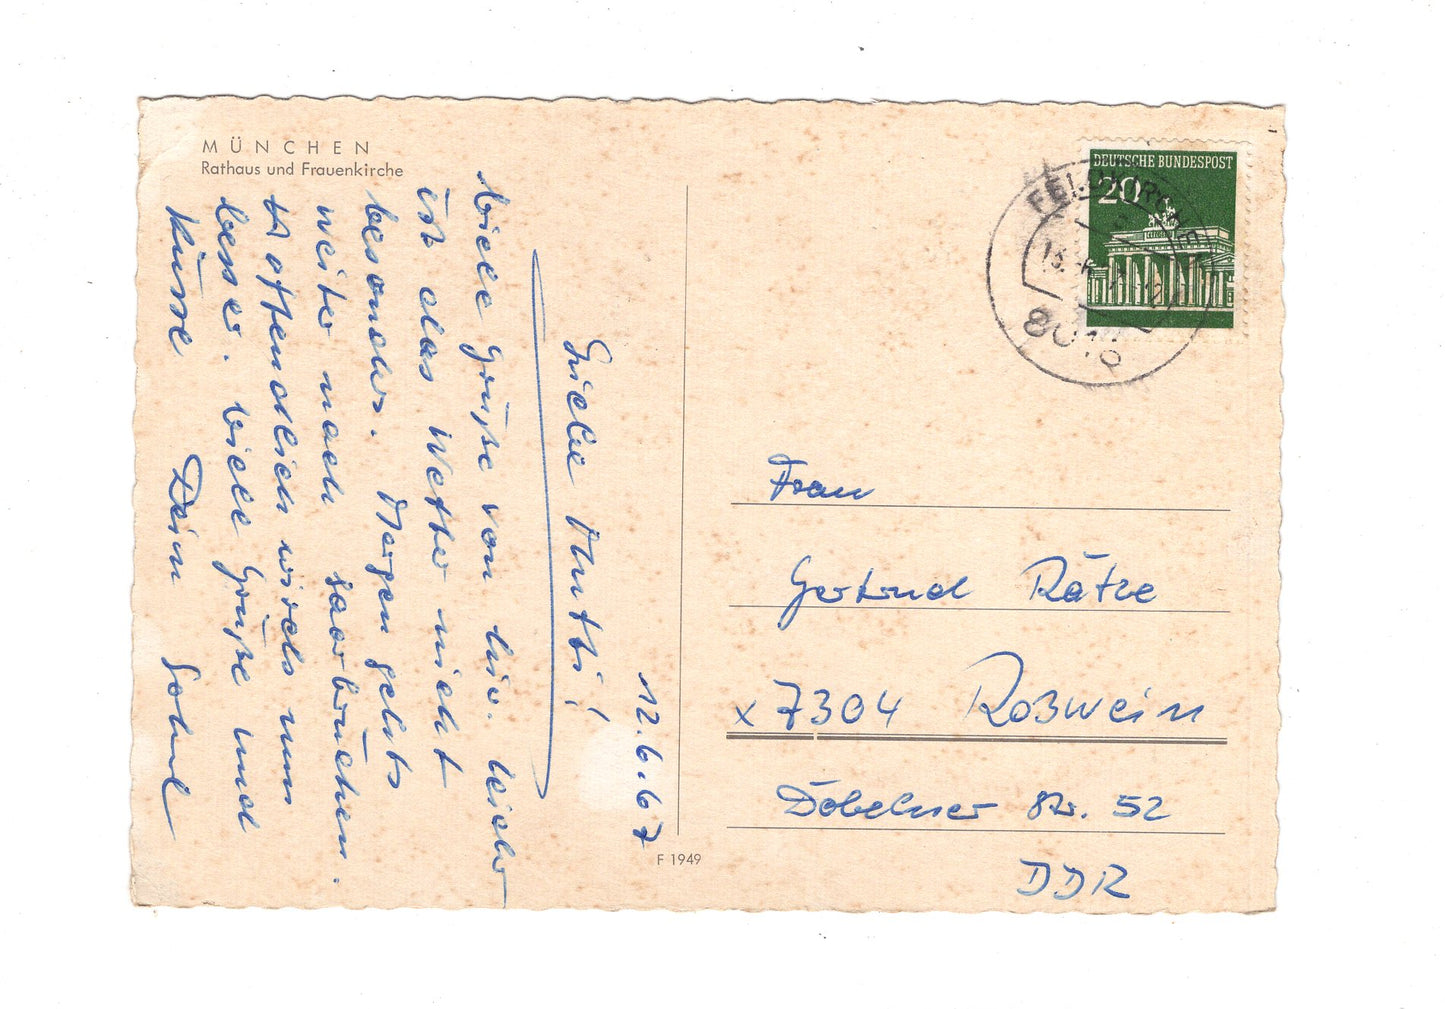 MÜNCHEN
Rathaus und Frauenkirche
12.6.67
Liebe Mutti!
Viele Grüße von hier. Leider
ist das Wetter nicht
besonders. Morgen gehts
weiter nach Saarbrücken.
Hoffentlich wirds nun
besser. Viele Grüße und
Küsse Dein
F 1949
DEUTSCHE BUNDESPOST
20
FELDKIRCHEN
8016
Frau
Gertrud Rätze
x 7304 Roßwein
Döbelner Str. 52
DDR